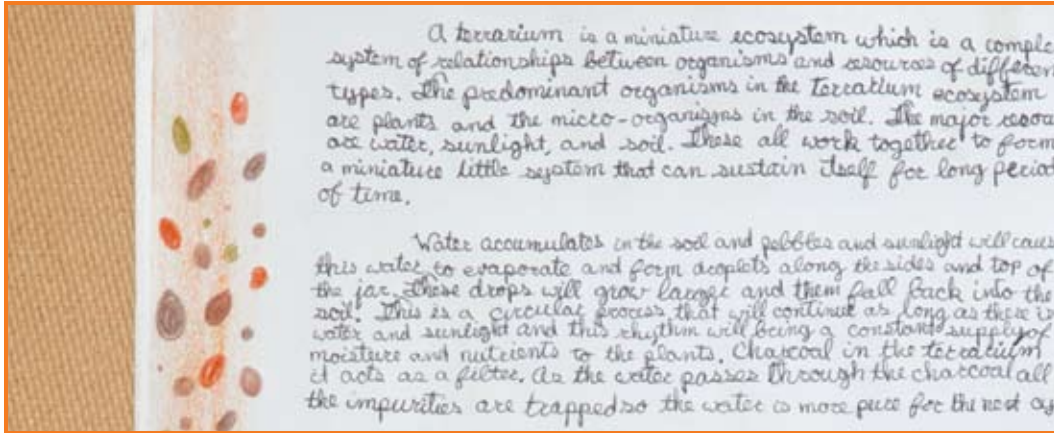 A terrarium is a miniature ecosystem which is a comple
system of relationships between organisms and resources of differen
types. The predominant organisms in the terrarium ecosystem
are plants and the micro-organisms in the soil. The major resou
are water, sunlight, and soil. These all work together to form
a miniature little system that can sustain itself for long period
of time.
Water accumulates in the soil and pebbles and sunlight will caus
this water to evaporate and form droplets along the sides and top of
the jar. These drops will grow larger and them fall back into the
soil. This is a circular process that will continue as long as there is
water and sunlight and this rhythm will bring a constant supply of
moisture and nutrients to the plants. Charcoal in the terrarium
it acts as a filter. As the water passes through the charcoal all
the impurities are trapped so the water is more pure for the next cy